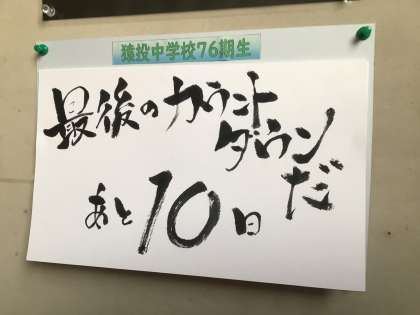 猿投中学校76期生
最後のカウント
ダウンだ
あと10日